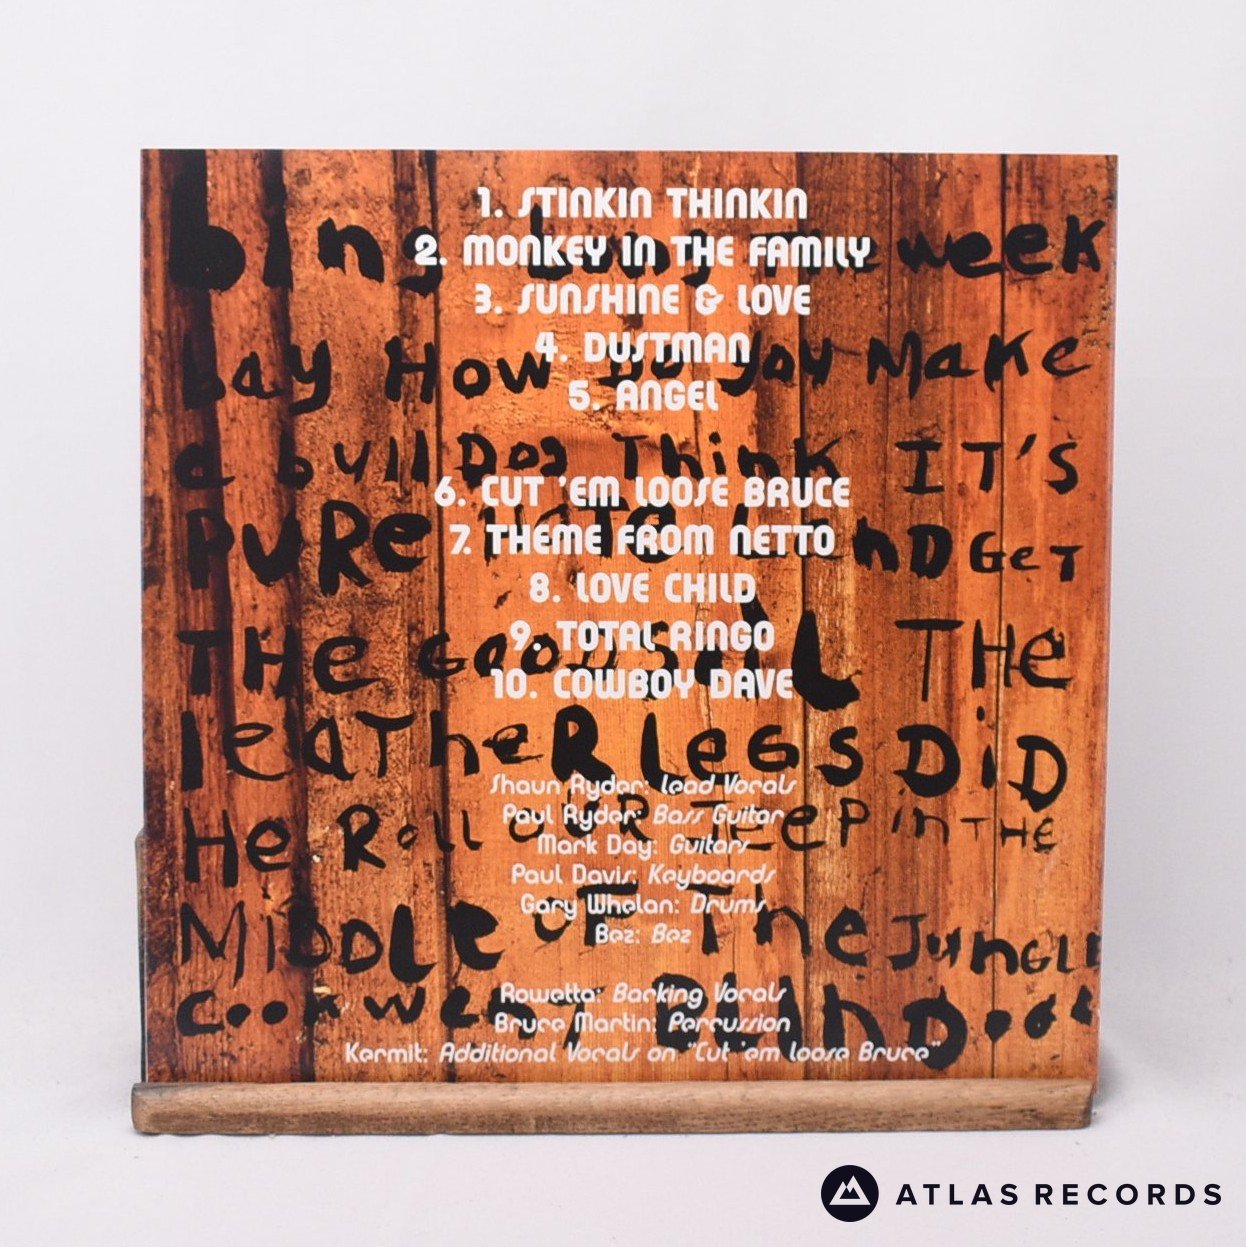 1. STINKIN THINKIN
2. MONKEY IN THE FAMILY
3. SUNSHINE & LOVE
4. DUSTMAN
5. ANGEL
6. CUT 'EM LOOSE BRUCE
7. THEME FROM NETTO
8. LOVE CHILD
9. TOTAL RINGO
10. COWBOY DAVE
Shaun Ryder: Lead Vocals
Paul Ryder: Bass Guitar
Mark Day: Guitars
Paul Davis: Keyboards
Gary Whelan: Drums
Bez: Bez
Rowetta: Backing Vocals
Bruce Martin: Percussion
Kermit: Additional Vocals on "Cut 'em loose Bruce"
bing week
bay How Do you Make
a bullDog Think IT'S
PURe GeT
THe THe
leATheR legs DiD
He Roll OUR JEEP in THE
MiDDLe OF The JUnGLE
ATLAS RECORDS